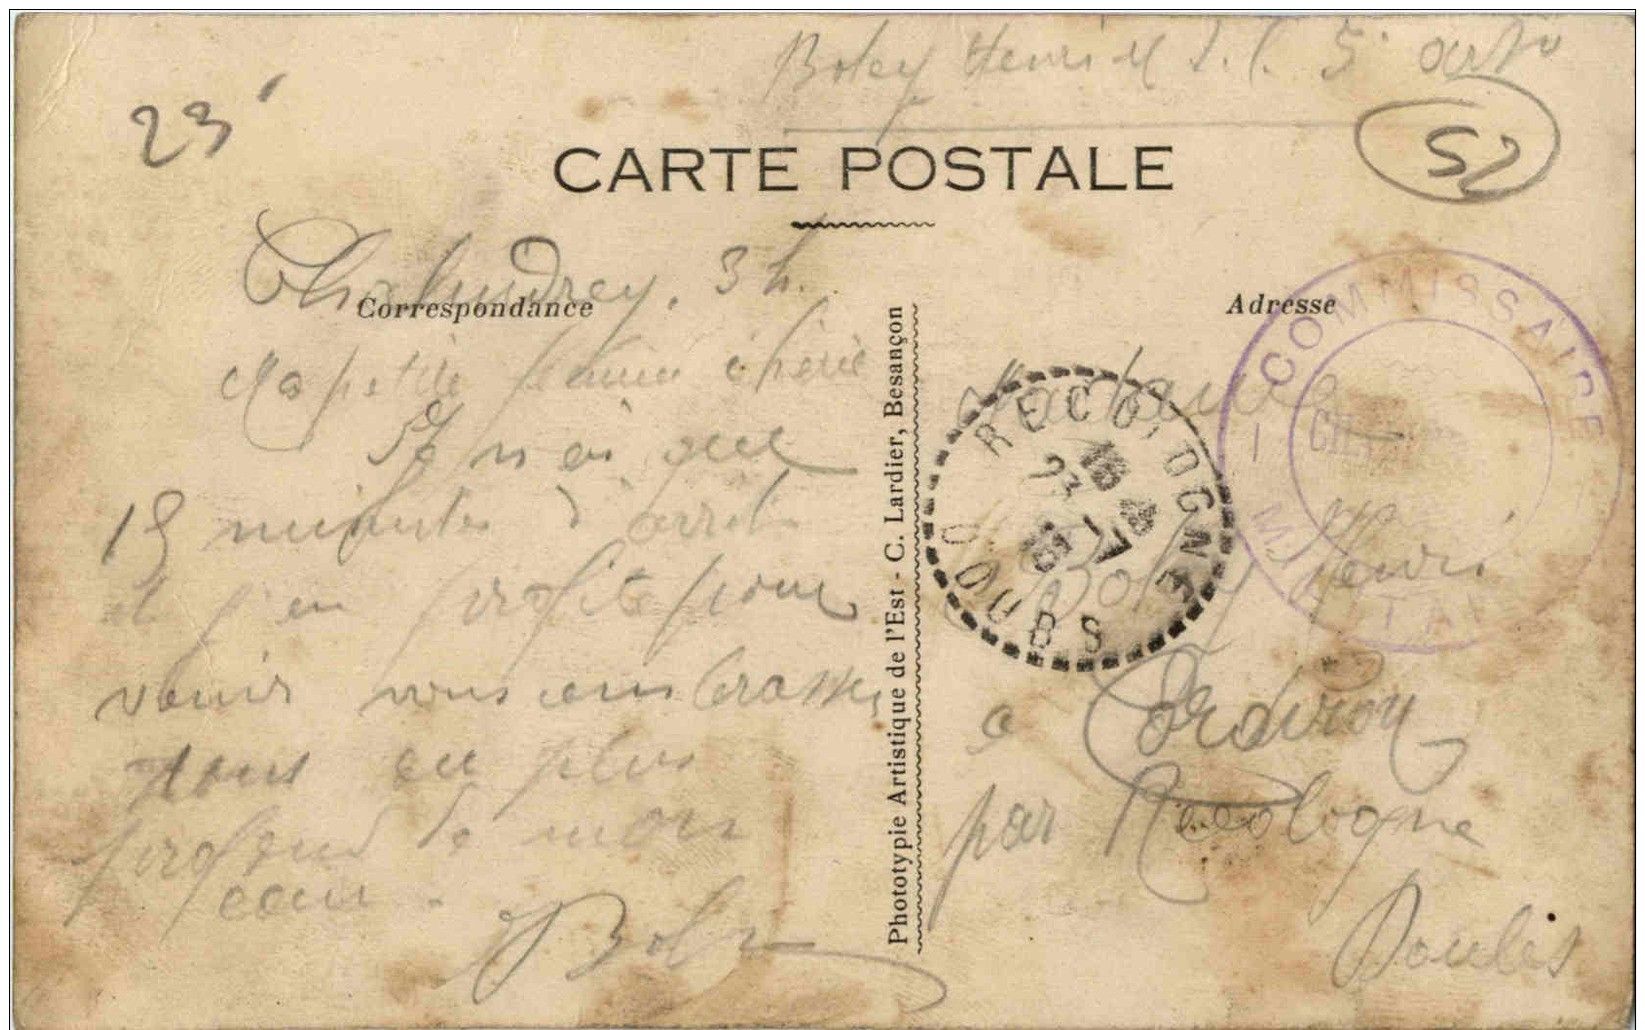 Boley Henri M d. l. 5e art
23
52
CARTE POSTALE
Correspondance
Adresse
Chalindrey. 3 h.
Ma petite femme chérie
Je n'ai que
15 minutes d'arrêt
et j'en profite pour
venir vous embrasser
tous au plus
profond de mon
cœur.
HBoley
Phototypie Artistique de l'Est - C. Lardier, Besançon
Madame
Boley Henri
a Cordiron
par Recologne
Doubs
RECOLOGNE
23
DOUBS
COMMISSAIRE
MILITAIRE